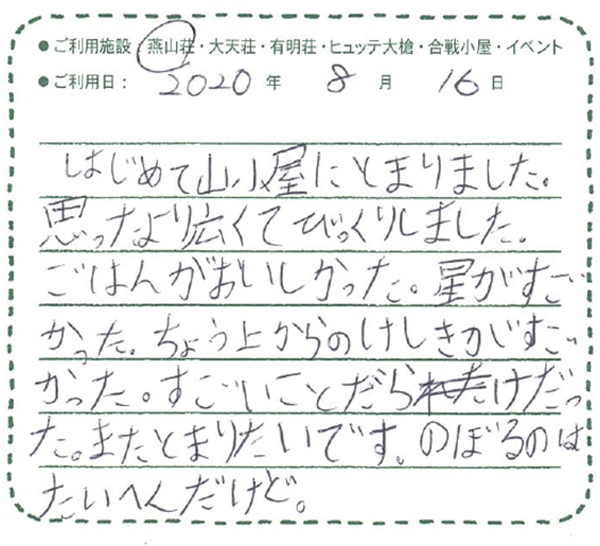 ●ご利用施設:燕山荘・大天荘・有明荘・ヒュッテ大槍・合戦小屋・イベント
●ご利用日: 2020 年 8 月 16 日
はじめて山小屋にとまりました。
思ったより広くてびっくりしました。
ごはんがおいしかった。星がすご
かった。ちょう上からのけしきがすご
かった。すごいことだらけだっ
た。またとまりたいです。のぼるのは
たいへんだけど。